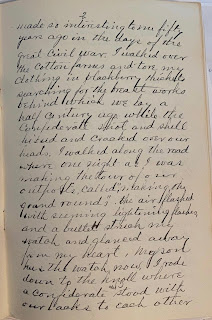 2
made so interesting to me fifty
years ago in the days of the
great Civil War. I walked over
the cotton farms and tore my
clothing in blackberry thickets
searching for the breast works
behind which we lay a
half century ago while the
Confederate shot and shell
hissed and cracked over our
heads. I walked along the road
where one night as I was
making the tour of our
outposts, called "making the
grand rounds", the air flashed
with seeming lightening flashes
and a bullet struck my
watch and glanced away
from my heart. My son
has the watch now. I rode
down to the knoll where
a confederate and I stood with
our backs to each other